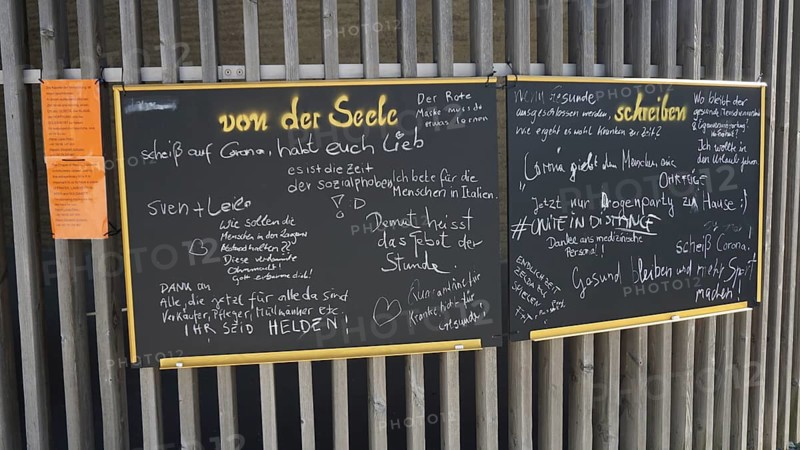 von der Seele
schreiben
Der Rote
Maske musste
etwas lernen
scheiß auf Corona, habt euch Lieb
es ist die Zeit
der sozialphoben
! D
Ich bete für die
Menschen in Italien.
Sven + Leike
Wie sollen die
Menschen in den Lagern
Abstand halten??
Diese verdammte
Ohnmacht!
Gott erbarme dich!
Demut heisst
das Gebot der
Stunde.
DANK an
Alle, die jetzt für alle da sind
Verkäufer, Pfleger, Müllmänner etc.
IHR SEID HELDEN!
für
Kranke
Gesund
Wenn Gesunde
ausgeschlossen werden,
wie ergeht es wohl Kranken zur Zeit?
Wo bleibt der
gesunde Menschenverstand
& Eigenverantwortung?
Ich wollte in
den Urlaub fahren
"Corona giebt dem Menschen eine
OHRFEIGE
Jetzt nur Drogenparty zu Hause :)
#UNITE IN DISTANCE
Danke ans medizinische
Personal!
scheiß Corona.
ENDLICH ZEIT
ZELDA ZU
SPIELEN!
Gesund bleiben und mehr Sport
machen!